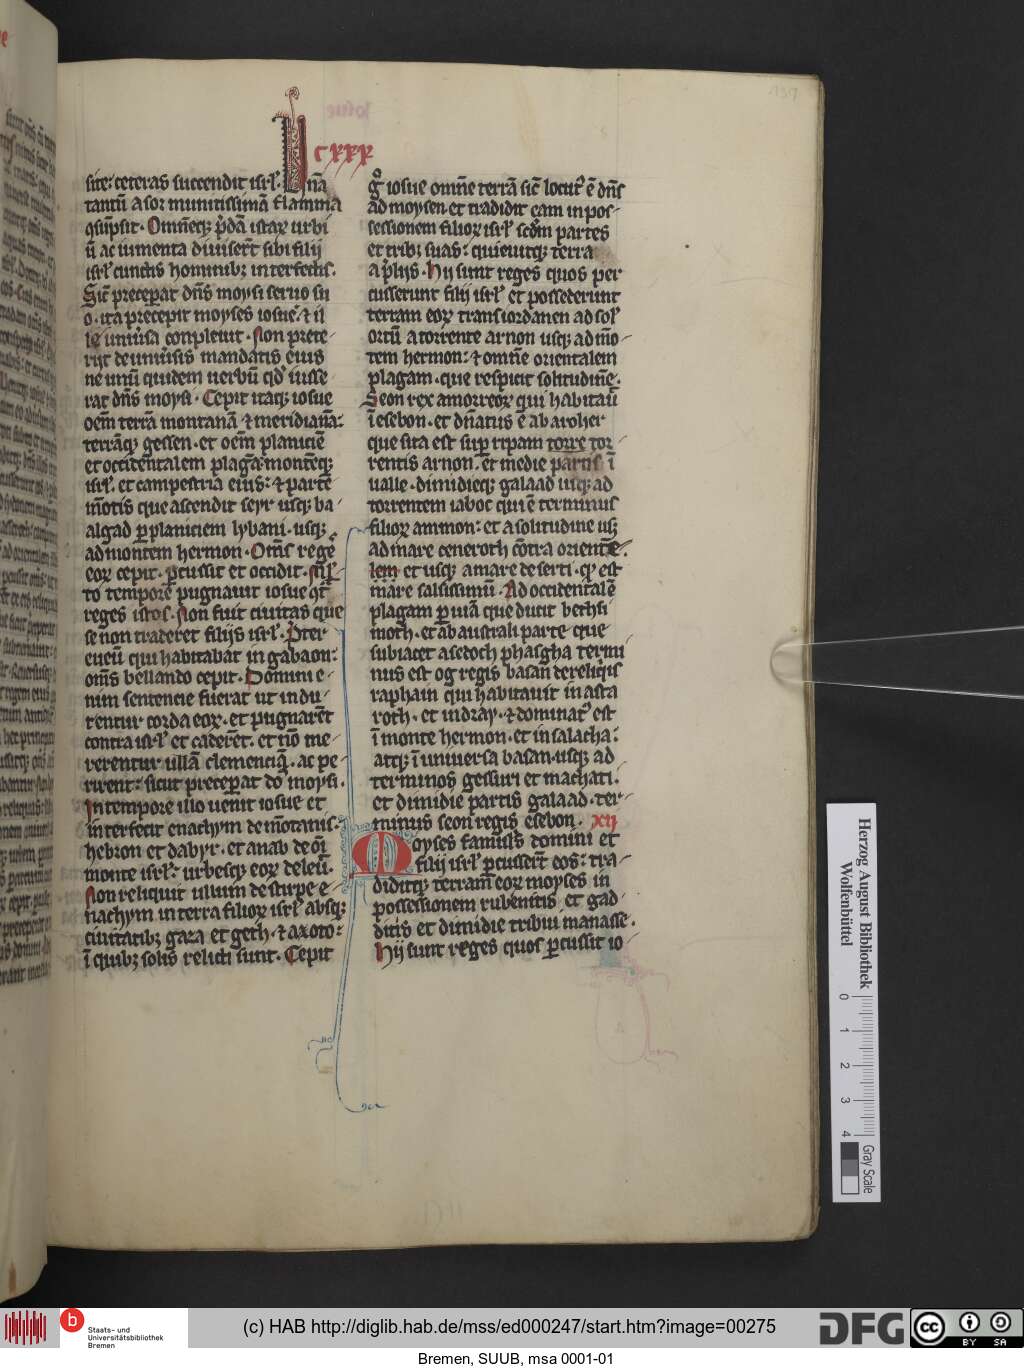 139
cxxx
site: ceteras succendit isrl. Vnā
tantū Asor munitissimā flamma
ꝯsūpsit. Omnēqꝫ p̄dā istaꝝ urbi
ū ac iumenta diuisert̄ sibi filij
isrl̄ cunctis hominibꝫ interfectis.
Sic̄ preceperat dn̄s moysi seruo su
o. ita precepit moyses iosue. ⁊ il
le uniu̾sa conpleuit. Non prete
rijt de uniu̾sis mandatis eius
ne unū quidem uerbū qd̾ iusse
rat dn̄s moysi. Cepit itaqꝫ iosue
oēm terrā montanā ⁊ meridianā:
terrāqꝫ gessen. et oēm planiciē
et occidentalem plagā. montēqꝫ
isrl̄. et campestria eius: ⁊ partē
mōtis que ascendit seyr usqꝫ ba
algad ꝑ planiciem lybani. usqꝫ
ad montem hermon. Oms̄ regē
eoꝝ cepit. ꝑcussit et occidit. Ml̄
to tempore pugnauit iosue ꝯt̄
reges istos. Non fuit ciuitas que
se non traderet filijs isrl̄. P̄ter
eueū qui habitabat in gabaon:
oms̄ bellando cepit. Domini e
nim sentencie fuerat ut indu
rentur corda eoꝝ. et pugnarēt
contra isrl̄ et caderēt. et nō me
rerentur ullā clemenciā. ac pe
rirent: sicut preceꝑat do̅ moysi.
In tempore illo uenit iosue et
interfecit enachym de mōtanis.
hebron et dabyr. et anab de oī
monte isrl̄: urbesqꝫ eoꝝ deleū.
Non reliquit ullum de stirpe e
nachym in terra filioꝝ isrl̄ absqꝫ
ciuitatibꝫ gaza et geth. ⁊ axoto:
ī quibꝫ solis relicti sunt. Cepit
gͦ iosue omnē terrā sic̄ locut̾ ē dn̄s
ad moysen. et tradidit eam in pos
sessionem filioꝝ isrl̄ scd̾m partes
et tribꝫ suas: quieuitqꝫ terra
a p̄lijs. Hij sunt reges quos per
cusserunt filij isrl̄ et possederunt
terram eoꝝ trans iordanen ad sol̾
ortū a torrente arnon usqꝫ ad mō
tem hermon: ⁊ omnē orientalem
plagam. que respicit solitudinē.
Seon rex amorreoꝝ qui habitauī
ī esebon. et dn̄atus ē ab aroher
que sita est suꝑ ripam torre tor
rentis arnon. et medie partis ī
ualle. dimidieqꝫ galaad usqꝫ ad
torrentem iaboc qui ē terminus
filioꝝ ammon: et a solitudine usqꝫ
ad mare ceneroth cōtra orientē.
lem et usqꝫ a mare deserti. qͦ est
mare salsissimū. Ad occidentalē
plagam ꝑ uiā que ducit bethsi
moth. et ab australi parte que
subiacet asedoch phasgha termi
nus est og regis basan de reliquis
raphaim qui habitauit in asta
roth. et in dray. ⁊ dominat̾ est
ī monte hermon. et in salacha:
atqꝫ ī uniuersa basan. usqꝫ ad
terminos gessuri et machati.
et dimidie partis galaad. ter
minus seon regis esebon. xii
Moyses famul̾s domini et
filij isrl̄ ꝑcussert̄ eos: tra
diditqꝫ terram eoꝝ moyses in
possessionem rubenitis et gad
ditis et dimidie tribui manasse.
Hij sunt reges quos ꝑcussit io
Herzog August Bibliothek
Wolfenbüttel
0 1 2 3 4
Gray Scale
b
Staats- und
Universitätsbibliothek
Bremen
(c) HAB http://diglib.hab.de/mss/ed000247/start.htm?image=00275
DFG
cc BY SA
Bremen, SUUB, msa 0001-01